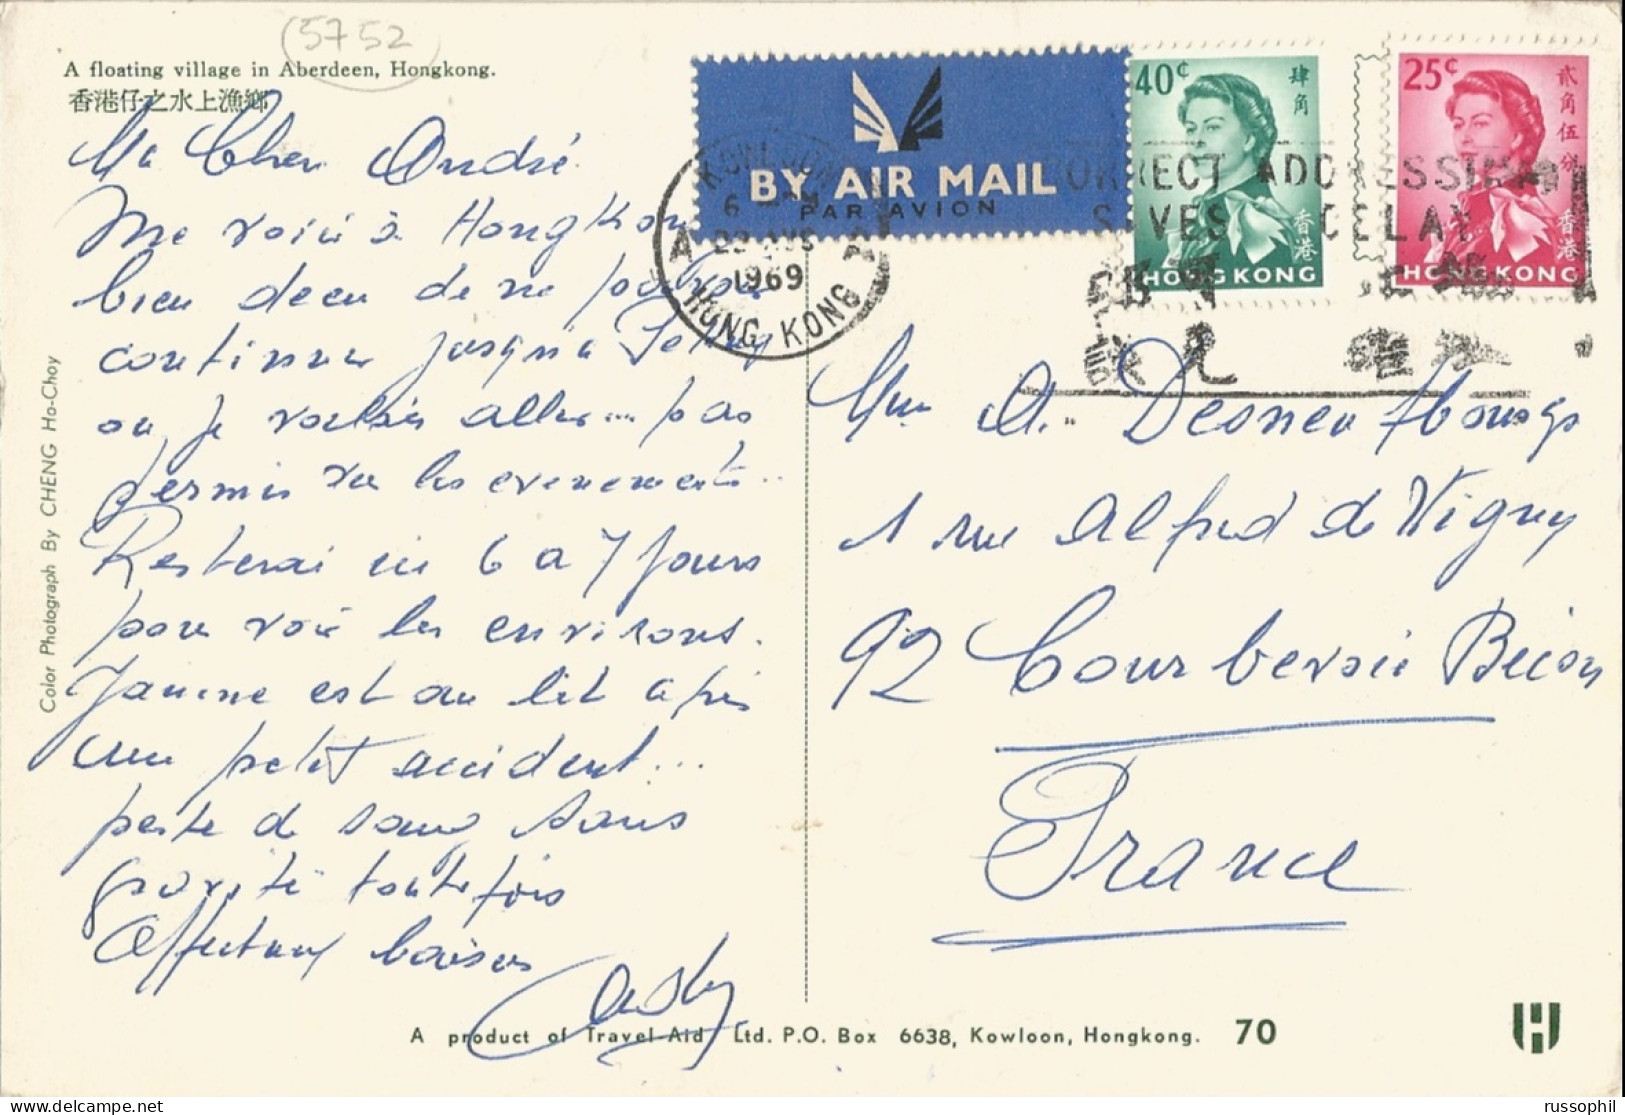 (5752)
A floating village in Aberdeen, Hongkong.
香港仔之水上漁鄉
Color Photograph By CHENG Ho-Choy
BY AIR MAIL
PAR AVION
40¢
肆角
香港
HONG KONG
25¢
貳角伍分
HONG KONG
KOWLOON
6
1969
HONG KONG
CORRECT ADDRESSING
SAVES DELAY
Ma Cher André
Me voici à HongKong
bien déçu de ne pouvoir
continuer jusqu'à Pekin
ou je voulais aller... pas
permis vu les evenements..
Resterai ici 6 a 7 jours
pour voir les environs.
Janine est au lit après
un petit accident...
perte de sang sans
gravité toutefois
Affectueux baisers
Mme A.
1 rue Alfred de Vigny
92 Courbevoie Bécon
France
A product of Travel-Aid Ltd. P.O. Box 6638, Kowloon, Hongkong. 70
russophil